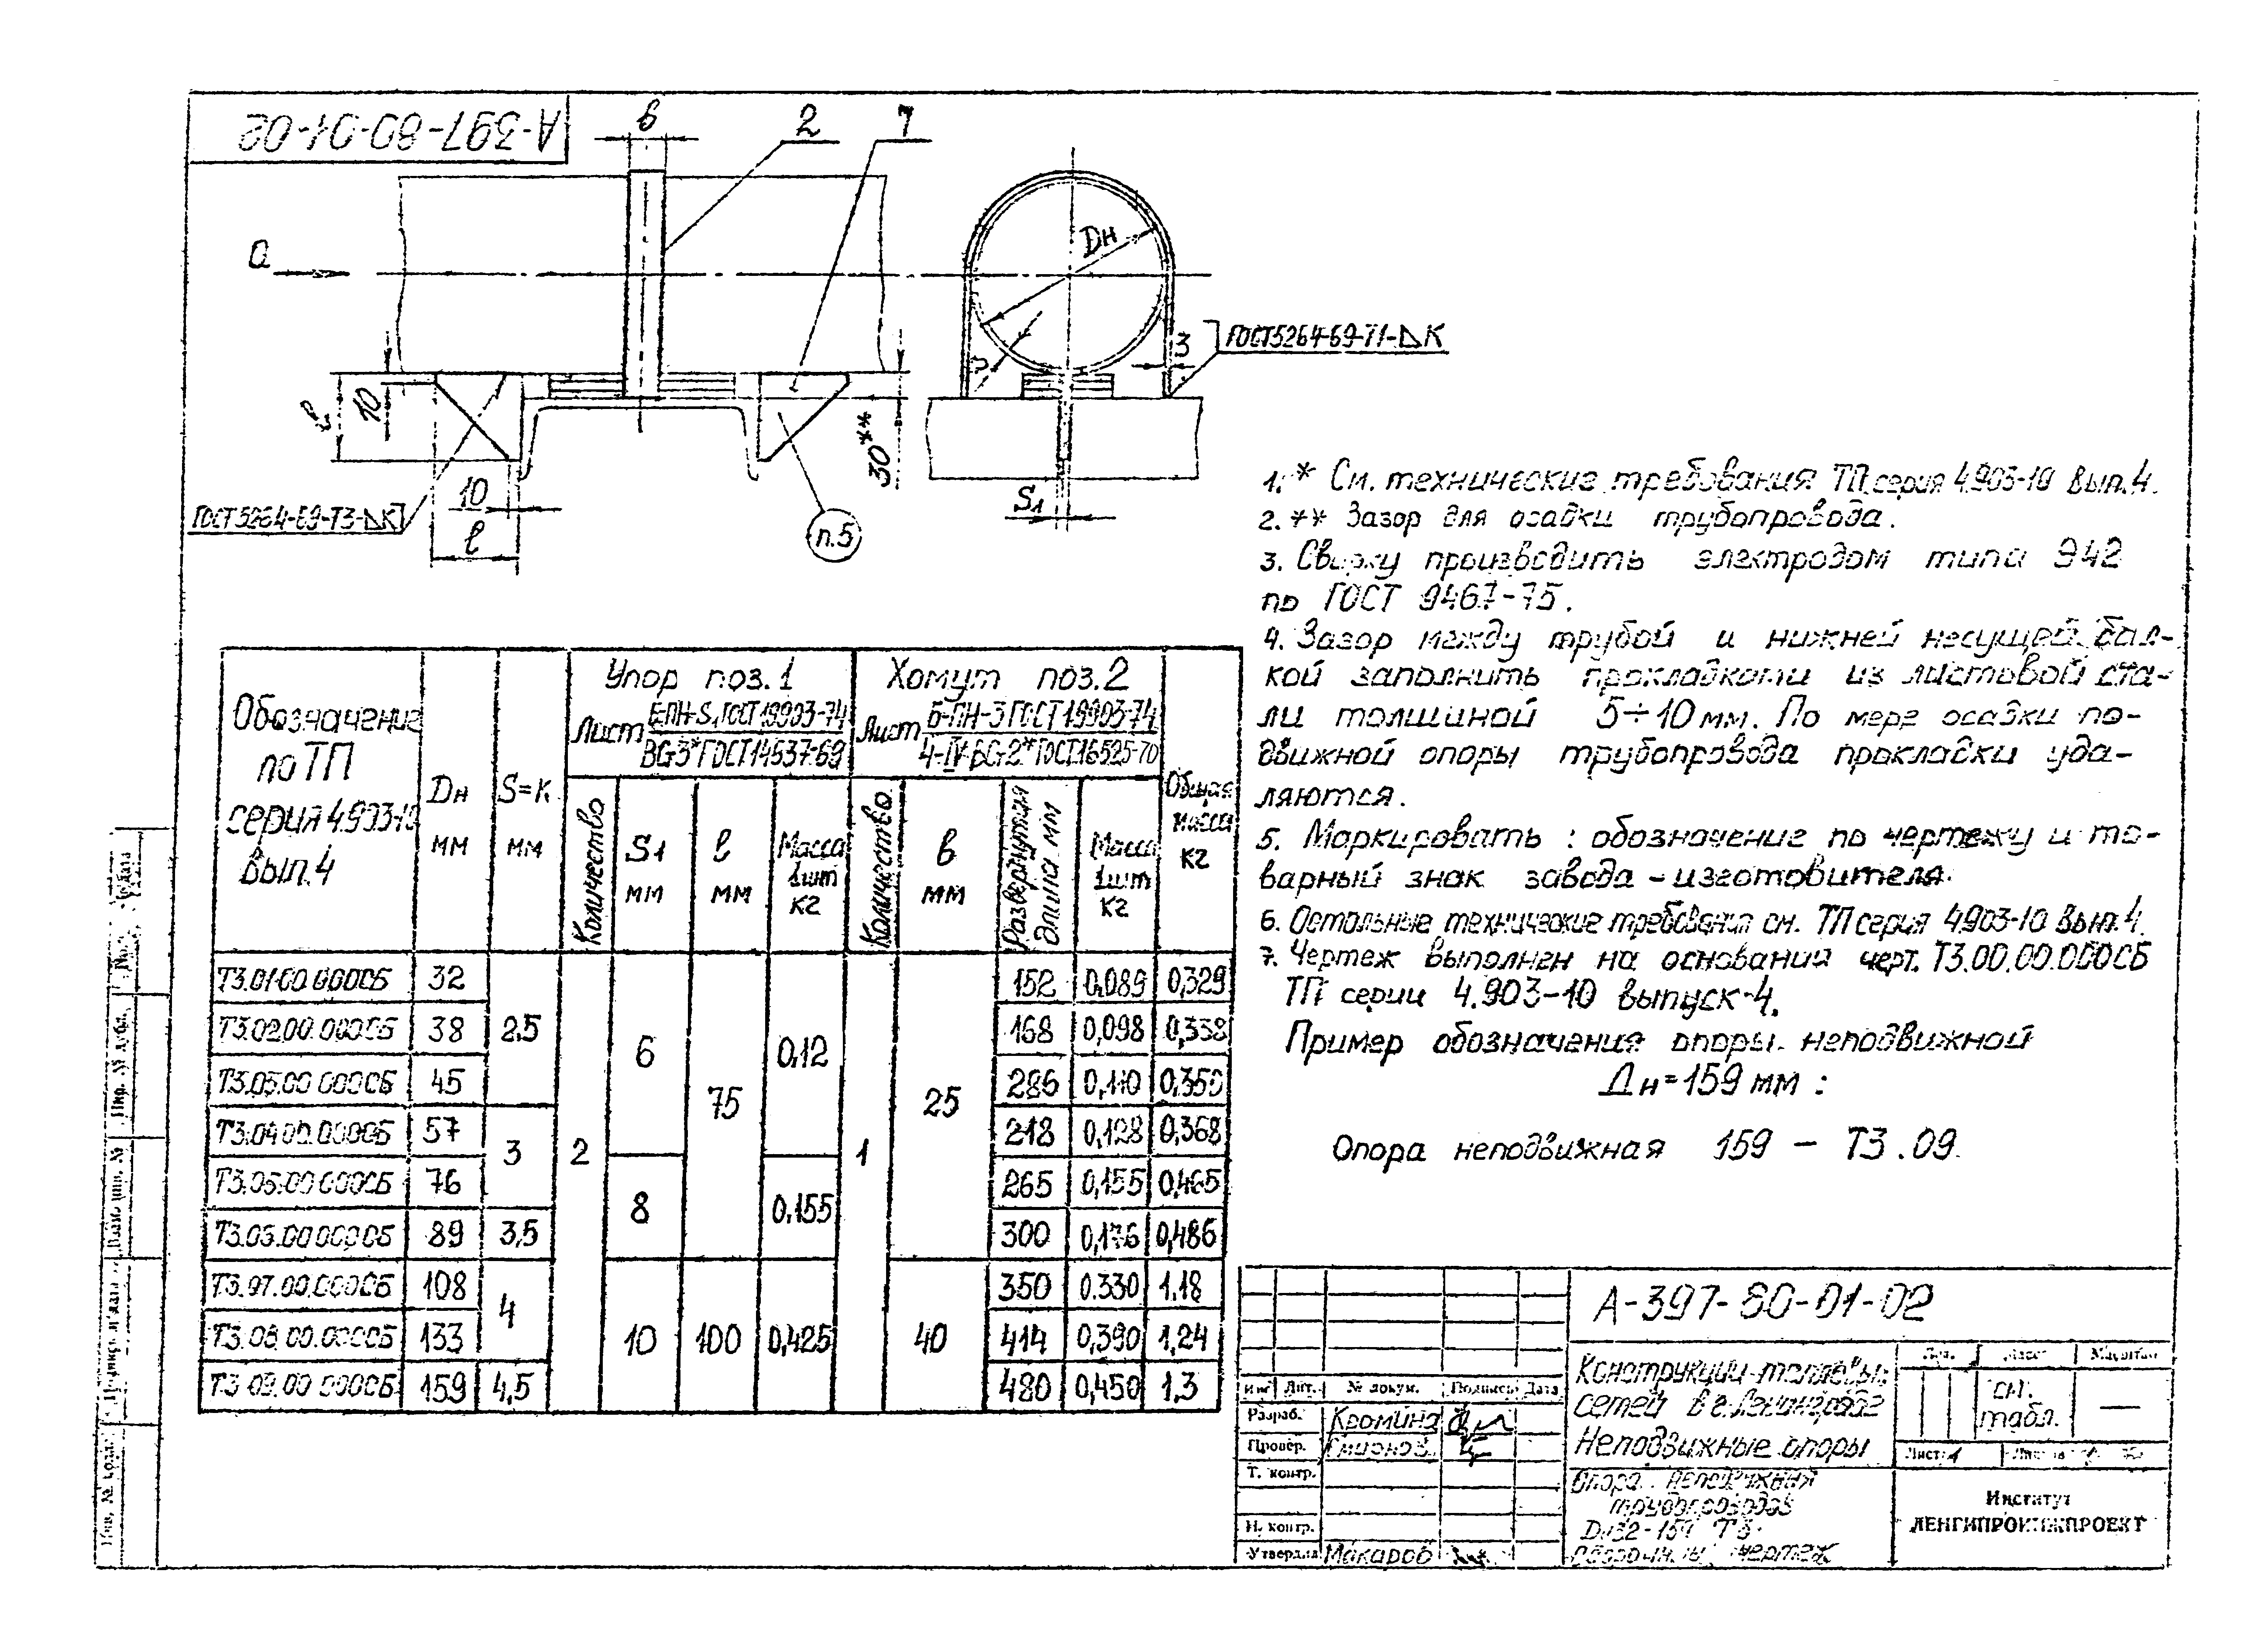 А-397-80-01-02
в
2
1
а
Dн
ГОСТ 5264-69-Т1-△К
3
10
30**
ГОСТ 5264-69-Т3-△К
10
ℓ
п.5
S1
1.* См. технические требования ТП серия 4.903-10 Вып.4.
2.** Зазор для осадки трубопровода.
3. Сварку производить электродом типа Э42
по ГОСТ 9467-75.
4. Зазор между трубой и нижней несущей бал-
кой заполнить прокладками из листовой ста-
ли толщиной 5÷10 мм. По мере осадки по-
движной опоры трубопровода прокладки уда-
ляются.
5. Маркировать: обозначение по чертежу и то-
варный знак завода-изготовителя.
6. Остальные технические требования см. ТП серия 4.903-10 Вып.4.
7. Чертеж выполнен на основании черт. Т3.00.00.000СБ
ТП серии 4.903-10 выпуск-4.
Пример обозначения опоры неподвижной
Дн=159 мм:
Опора неподвижная 159 - Т3.09.
Обозначение по ТП серия 4.903-10 Вып.4
Dн мм
S=К мм
Упор поз.1
Лист Б-ПН-S1 ГОСТ 19903-74
ГОСТ 14637-69
Хомут поз.2
Лист Б-ПН-3 ГОСТ 19903-74
ГОСТ 16525-70
Общая масса кг
Количество
S1 мм
ℓ мм
Масса 1шт кг
Количество
в мм
Развернутая длина мм
Масса 1шт кг
Т3.01.00.000СБ 32 2,5 2 6 75 0,12 1 25 152 0,089 0,329
Т3.02.00.000СБ 38 168 0,098 0,338
Т3.03.00.000СБ 45 286 0,110 0,350
Т3.04.00.000СБ 57 3 218 0,128 0,368
Т3.05.00.000СБ 76 8 0,155 265 0,155 0,465
Т3.03.00.000СБ 89 3,5 300 0,176 0,486
Т3.97.00.000СБ 108 4 10 100 0,425 40 350 0.330 1.18
Т3.08.00.000СБ 133 414 0,390 1,24
Т3.09.00.000СБ 159 4,5 480 0,450 1,3
А-397-80-01-02
Конструкции тепловы
сетей в г. Ленинграде
Неподвижные опоры
Опора неподвижная
трубопроводов
Dн32-159 Т3.
чертеж
Лит. Масса Масштаб
см. табл. —
Лист 1
Институт
ЛЕНГИПРОИНЖПРОЕКТ
Лит. № докум. Подпись Дата
Разраб. Кромина
Провер. Смирнов
Т. контр.
Н. контр.
Утвердил Макаров